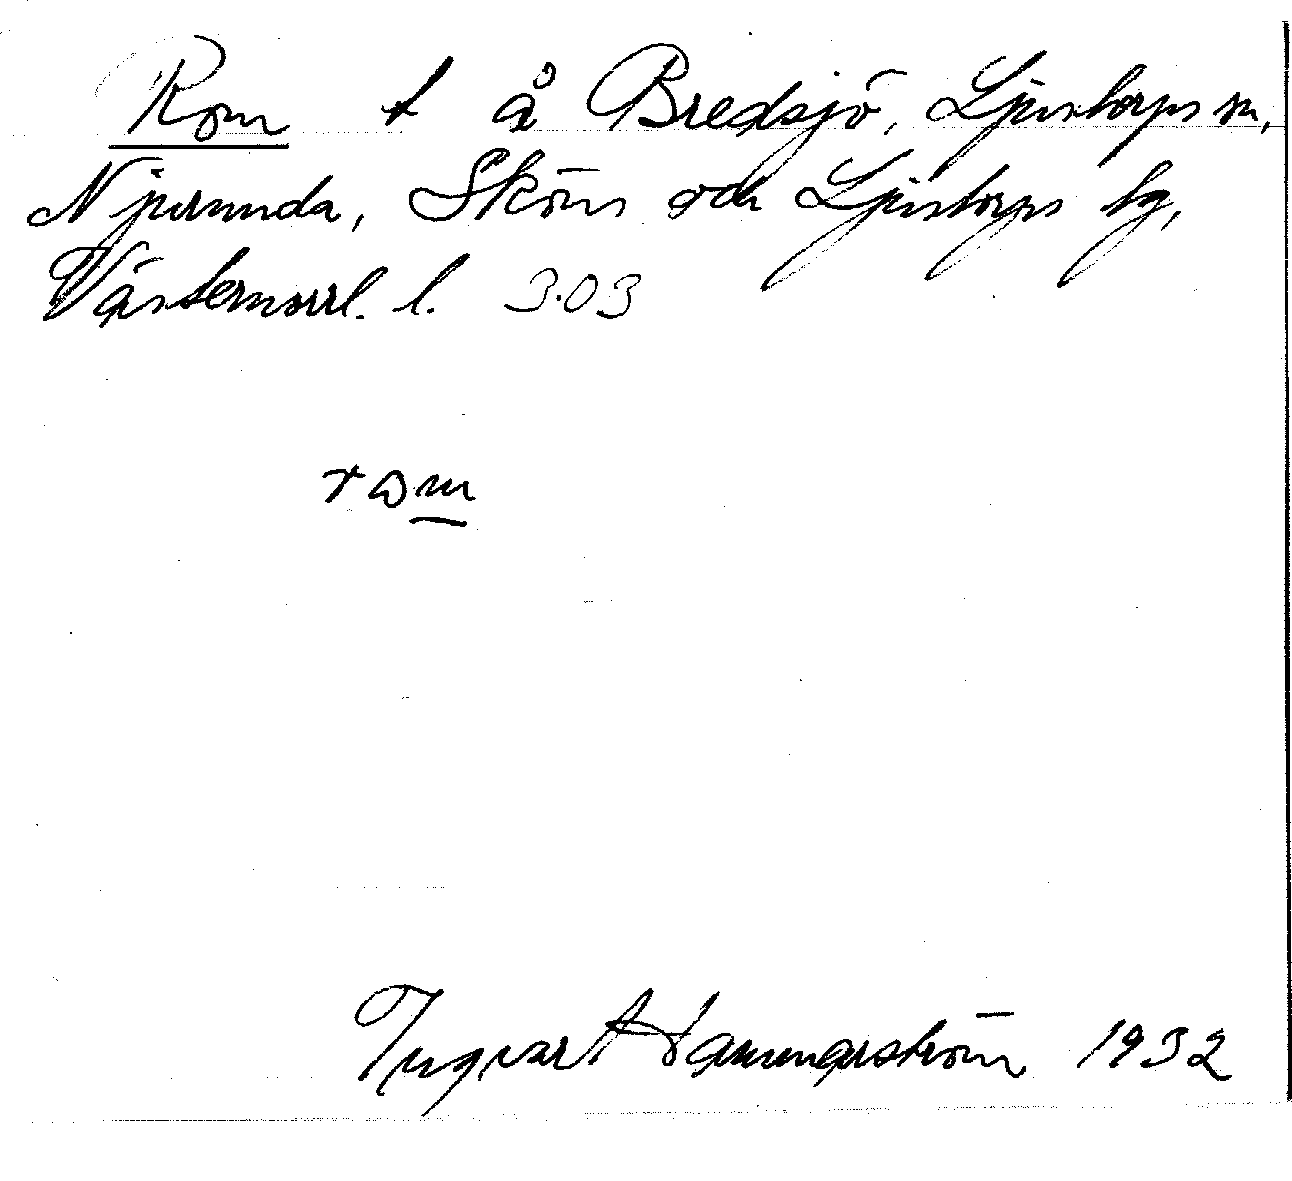 Rom t å Bredsjö, Ljustorps sn,
Njurunda, Sköns och Ljustorps tg,
Västernorrl. l. 3.03
rɷm
Ingvar Hammarström 1932